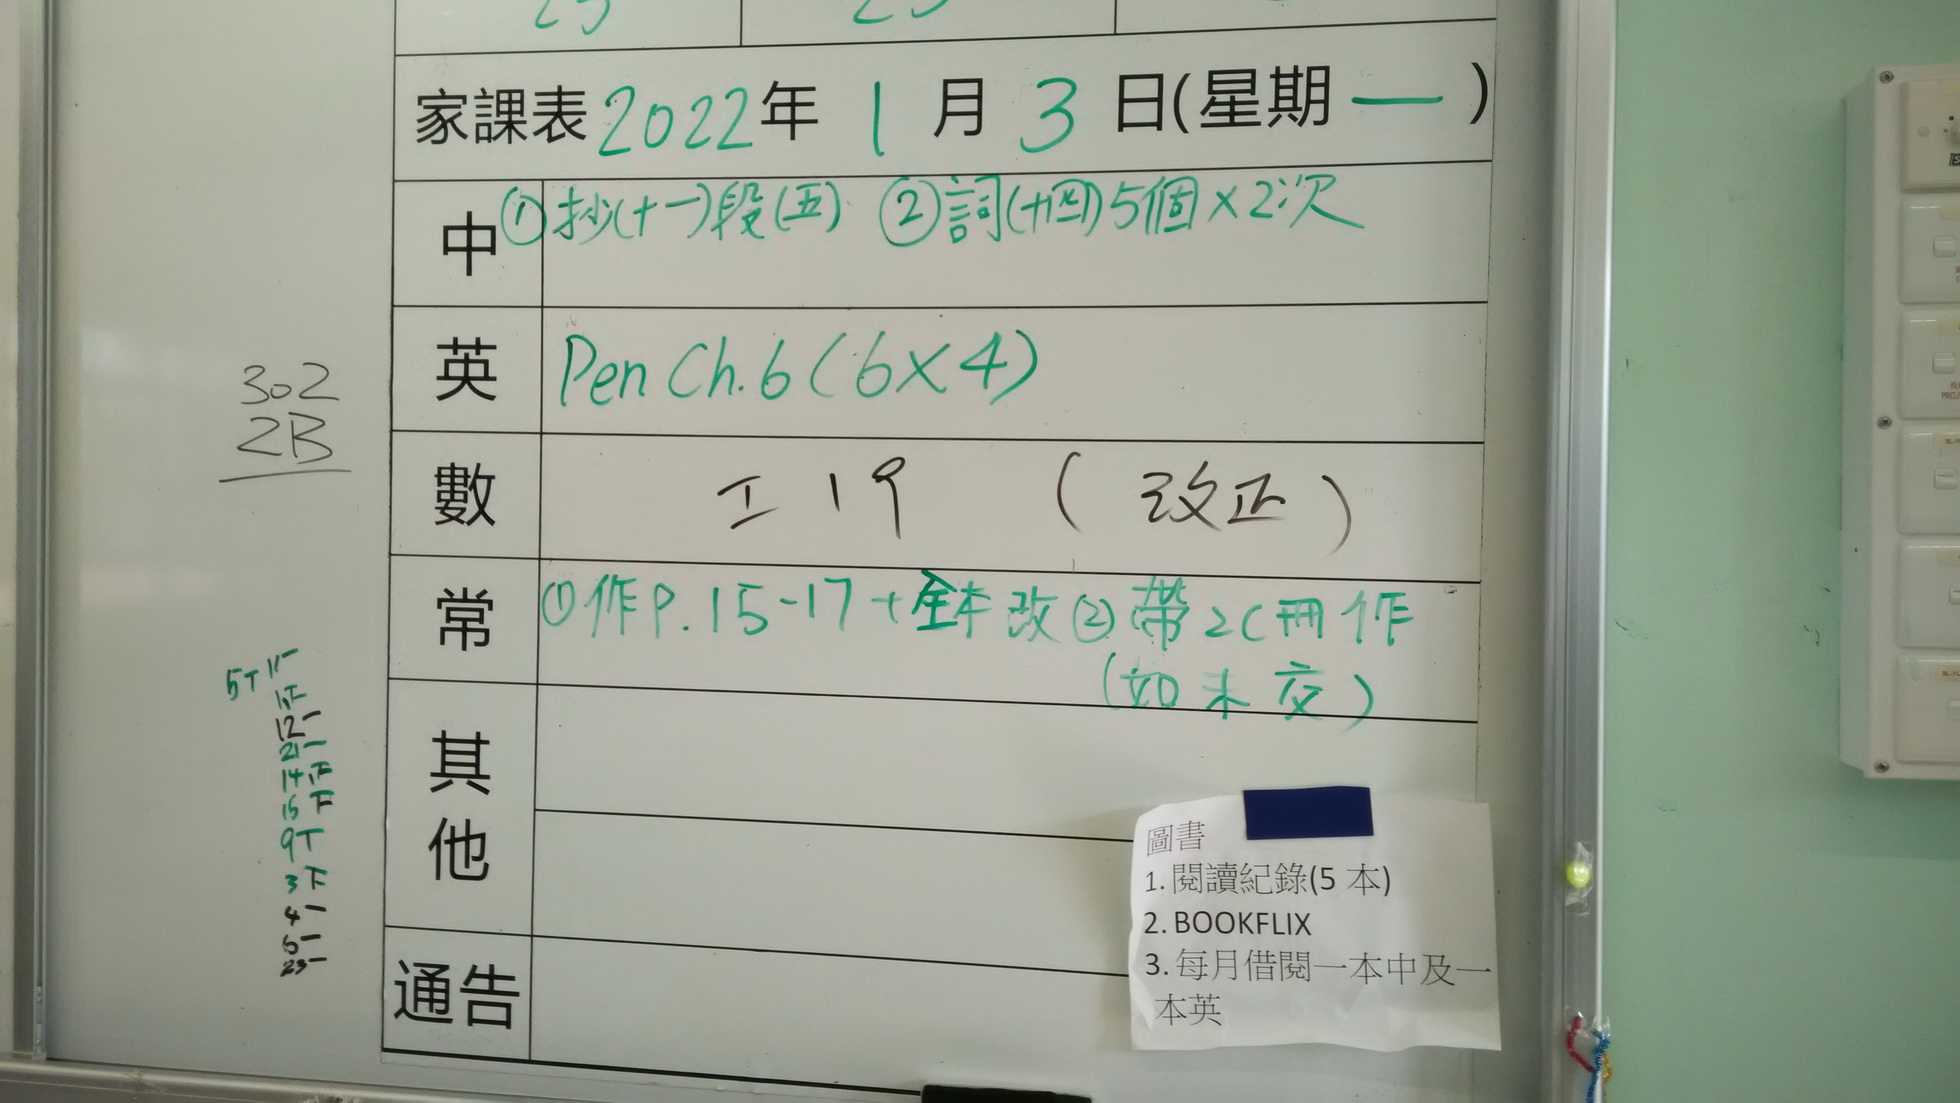 家課表 2022年 1月 3日(星期一)
中 ①抄(十一)段(五) ②詞(十四)5個×2次
英 Pen Ch.6 (6×4)
數 工19 (改正)
常 ①作P.15-17+全本改 ②帶2C冊作
(如未交)
其他
通告
圖書
1. 閱讀紀錄(5 本)
2. BOOKFLIX
3. 每月借閱一本中及一
本英
302
2B